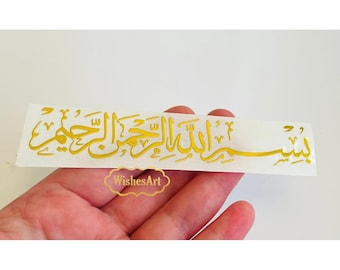 بِسْمِ اللهِ الرَّحْمٰنِ الرَّحِيْمِ
WishesArt